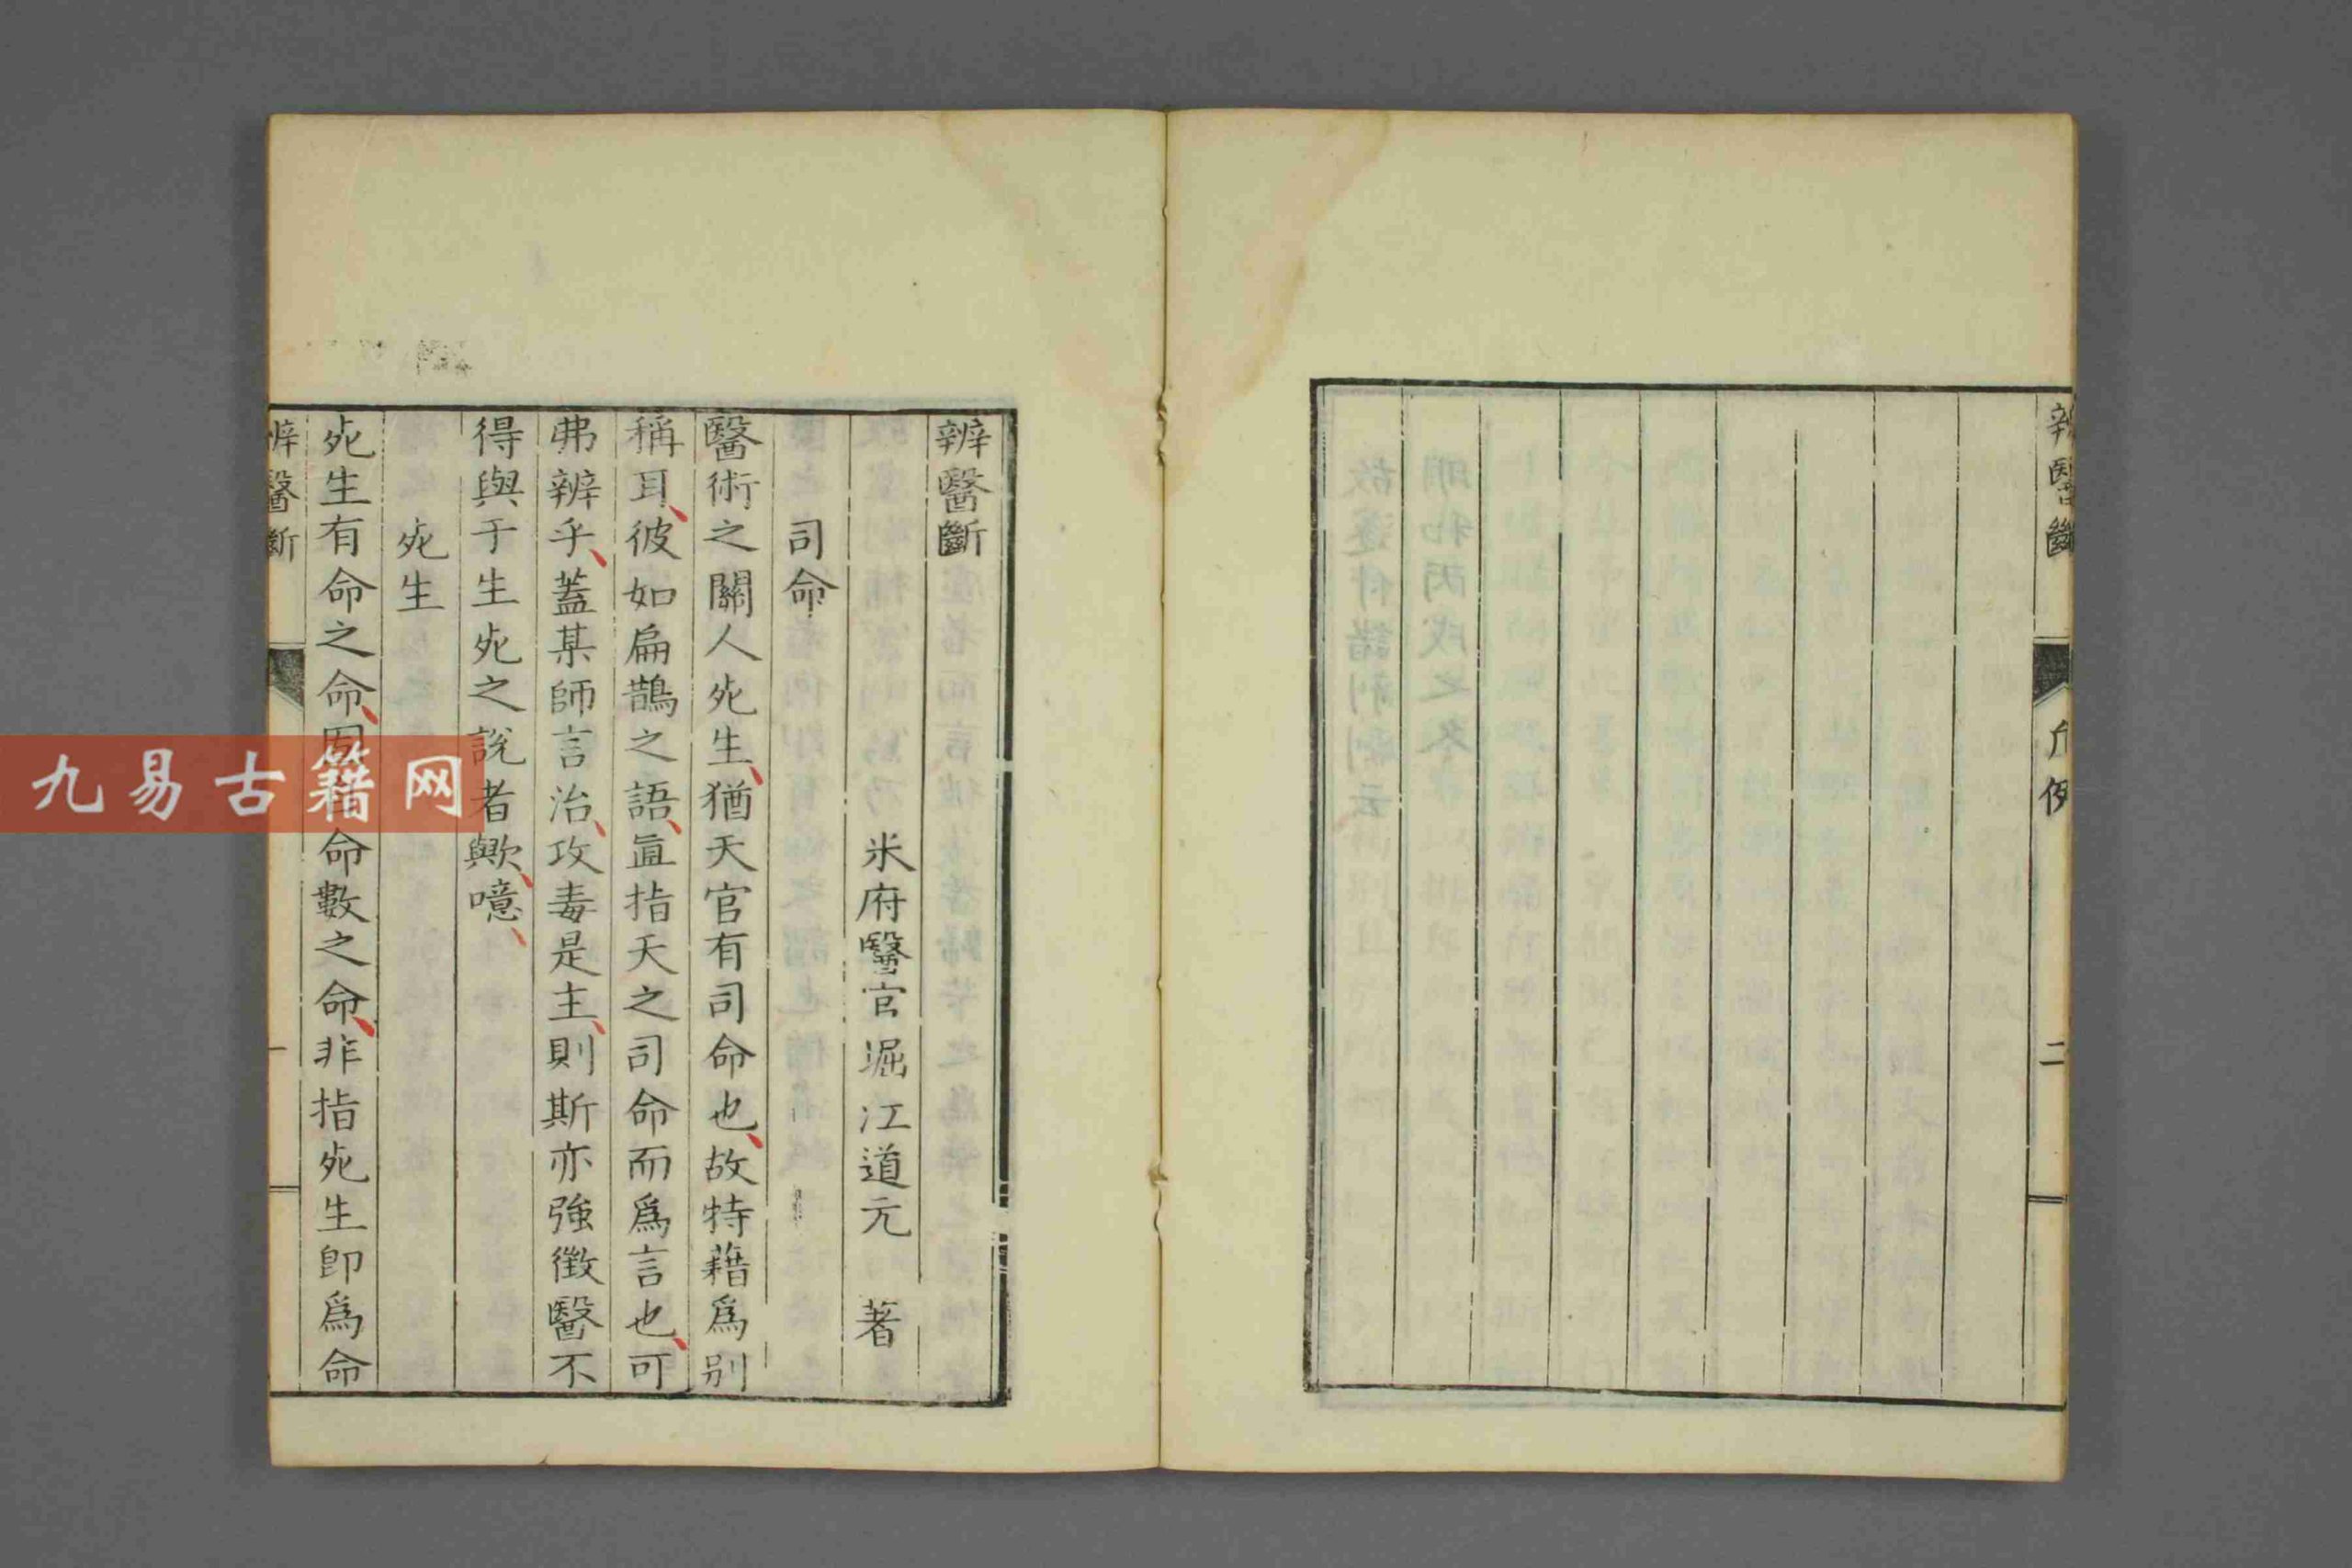 辨醫斷
凡例
二
辨醫斷
米府醫官堀江道元 著
司命
醫術之關人死生、猶天官有司命也、故特藉爲別
稱耳、彼如扁鵲之語、直指天之司命而爲言也、可
弗辨乎、蓋某師言治、攻毒是主、則斯亦強徵醫不
得與于生死之說者歟、噫、
死生
死生有命之命、因命數之命、非指死生卽爲命
辨醫斷
一
九易古籍网